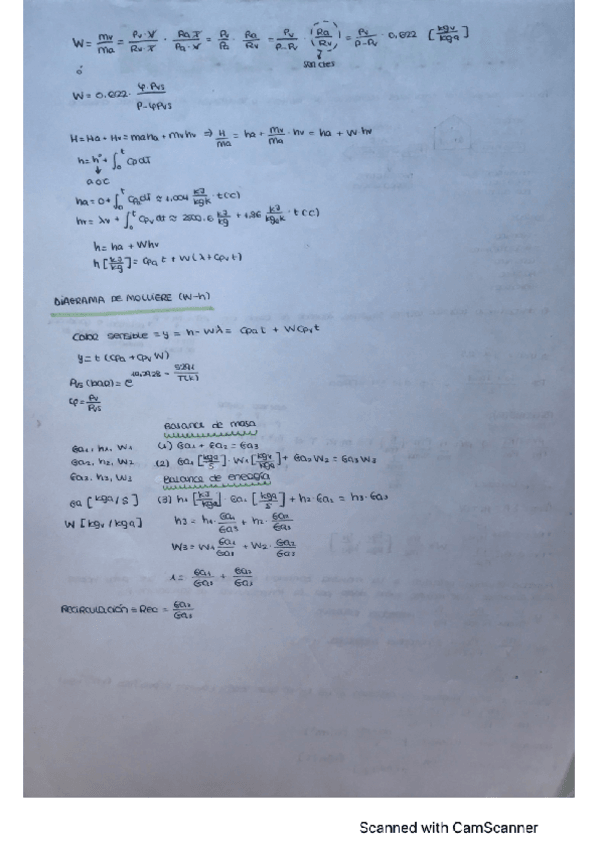 W = mv/ma = (Pv·V)/(Rv·T) · (Ra·T)/(Pa·V) = Pv/Pa · Ra/Rv = Pv/(P-Pv) · (Ra/Rv) = Pv/(P-Pv) · 0,622 [kgv/kga]
son ctes
ó
W = 0,622 · φ·Pvs/(P-φPvs)
H = Ha + Hv = maha + mvhv ⇒ H/ma = ha + mv/ma · hv = ha + W·hv
h = h° + ∫₀ᵗ CpdT
a 0°C
ha = 0 + ∫₀ᵗ CpadT ≈ 1,004 kJ/kgK · t(C)
hv = λv + ∫₀ᵗ CpvdT ≈ 2500,6 kJ/kg + 1,86 kJ/kgK · t(C)
h = ha + Whv
h [kJ/kg] = Cpa t + W(λ + Cpv t)
DIAGRAMA DE MOLLIERE (W-h)
Calor sensible = y = h - Wλ = Cpa t + WCpv t
y = t (Cpa + Cpv W)
φ = Pv/Pvs
Balance de masa
Ga1, h1, W1 (1) Ga1 + Ga2 = Ga3
Ga2, h2, W2 (2) Ga1 [kga/s] · W1 [kgv/kga] + Ga2 W2 = Ga3 W3
Ga3, h3, W3 Balance de energía
Ga [kga/s] (3) h1 [kJ/kga] · Ga1 [kga/s] + h2 · Ga2 = h3 · Ga3
W [kgv/kga] h3 = h1 · Ga1/Ga3 + h2 · Ga2/Ga3
W3 = W1 Ga1/Ga3 + W2 · Ga2/Ga3
1 = Ga1/Ga3 + Ga2/Ga3
RECIRCULACIÓN = Rec =
Scanned with CamScanner